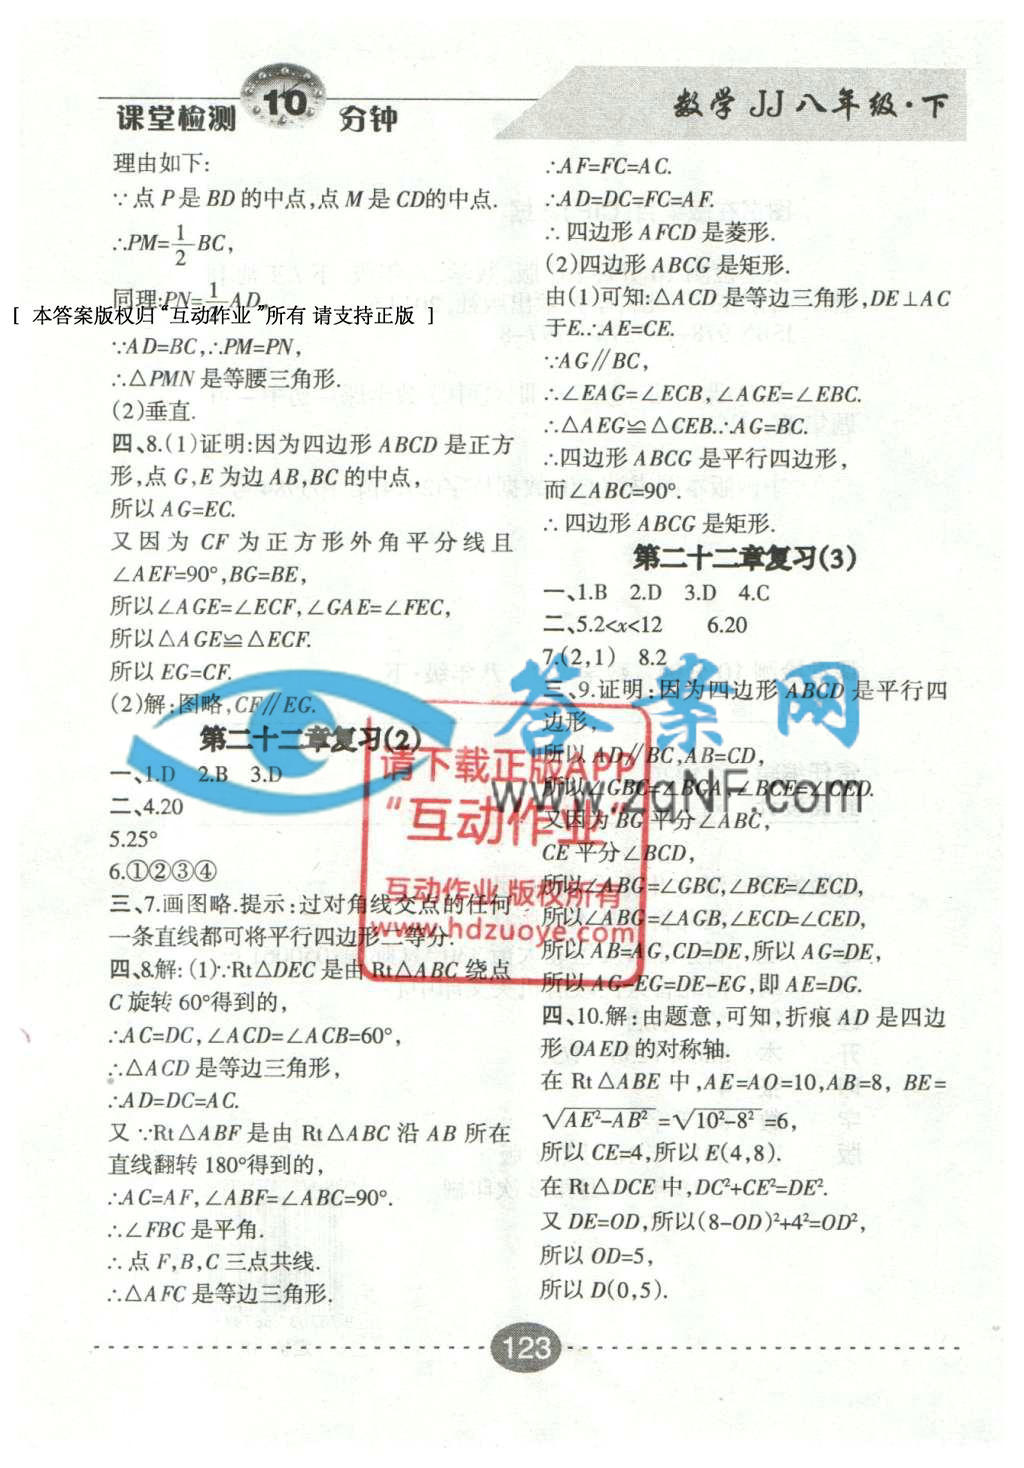 课堂检测 10 分钟
数学 JJ 八年级·下
理由如下:
∵点P是BD的中点,点M是CD的中点.
∴PM=1/2BC,
同理:PN=1/2AD,
[ 本答案版权归“互动作业”所有 请支持正版 ]
∵AD=BC,∴PM=PN,
∴△PMN是等腰三角形.
(2)垂直.
四、8.(1)证明:因为四边形ABCD是正方
形,点G,E为边AB,BC的中点,
所以AG=EC.
又因为CF为正方形外角平分线且
∠AEF=90°,BG=BE,
所以∠AGE=∠ECF,∠GAE=∠FEC,
所以△AGE≌△ECF.
所以EG=CF.
(2)解:图略,CF∥EG.
第二十二章复习(2)
一、1.D 2.B 3.D
二、4.20
5.25°
6.①②③④
三、7.画图略.提示:过对角线交点的任何
一条直线都可将平行四边形二等分.
四、8.解:(1)∵Rt△DEC是由Rt△ABC绕点
C旋转60°得到的,
∴AC=DC,∠ACD=∠ACB=60°,
∴△ACD是等边三角形,
∴AD=DC=AC.
又∵Rt△ABF是由Rt△ABC沿AB所在
直线翻转180°得到的,
∴AC=AF,∠ABF=∠ABC=90°.
∴∠FBC是平角.
∴点F,B,C三点共线.
∴△AFC是等边三角形.
∴AF=FC=AC.
∴AD=DC=FC=AF.
∴四边形AFCD是菱形.
(2)四边形ABCG是矩形.
由(1)可知:△ACD是等边三角形,DE⊥AC
于E.∴AE=CE.
∵AG∥BC,
∴∠EAG=∠ECB,∠AGE=∠EBC.
∴△AEG≌△CEB.∴AG=BC.
∴四边形ABCG是平行四边形,
而∠ABC=90°.
∴四边形ABCG是矩形.
第二十二章复习(3)
一、1.B 2.D 3.D 4.C
二、5.2<x<12 6.20
7.(2,1) 8.2
三、9.证明:因为四边形ABCD是平行四
边形,
所以AD∥BC,AB=CD,
所以∠GBC=∠BGA,∠BCE=∠CED.
又因为BG平分∠ABC,
CE平分∠BCD,
所以∠ABG=∠GBC,∠BCE=∠ECD,
所以∠ABG=∠AGB,∠ECD=∠CED,
所以AB=AG,CD=DE,所以AG=DE,
所以AG-EG=DE-EG,即AE=DG.
四、10.解:由题意,可知,折痕AD是四边
形OAED的对称轴.
在Rt△ABE中,AE=AO=10,AB=8, BE=
√(AE²-AB²)=√(10²-8²)=6,
所以CE=4,所以E(4,8).
在Rt△DCE中,DC²+CE²=DE².
又DE=OD,所以(8-OD)²+4²=OD²,
所以OD=5,
所以D(0,5).
答案网
www.zqNF.com
请下载正版APP
“互动作业”
互动作业 版权所有
www.hdzuoye.com
123